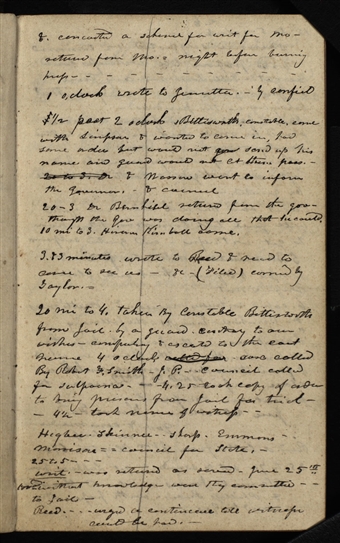 & concocted a scheme for writ for
return from this night before burning
1 o'clock wrote to Jeanetta. - by
1/2 past 2 o'clock Bettisworth, constable, come
with Simpson & wanted to come in, had
some order but would not send up his
name and guard would not let them pass. -
& Wasson went to inform
the Governor. & council
20-3. Dr Bernhisel return from the gov-
the Gov was doing all that he could,
10 mi to 3. Hiram Kimball come.
3. minutes wrote to Reed & send to
come to see us - &c - (filed) carried by
Taylor. -
20 mi to 4. taken By Constable Bettisworth
from Jail. by a guard. contrary to our
wishes - compulsory & escorted to the court
house 4 o'clock case called
By Robert F. Smith - J. P. - council called
for subpoenas - - 4.25 took copy of order
to bring prisoners from Jail for trial -
- 4 took names of witness - -
Higbee. Skinner. Sharp. Emmons. -
Morrison = council for State, -
25 to 5 -
writ - was returned as served - June 25th
without knowledge were they committed - -
to Jail -
Reed. - - urged a continuance till witnesses
could be had. -